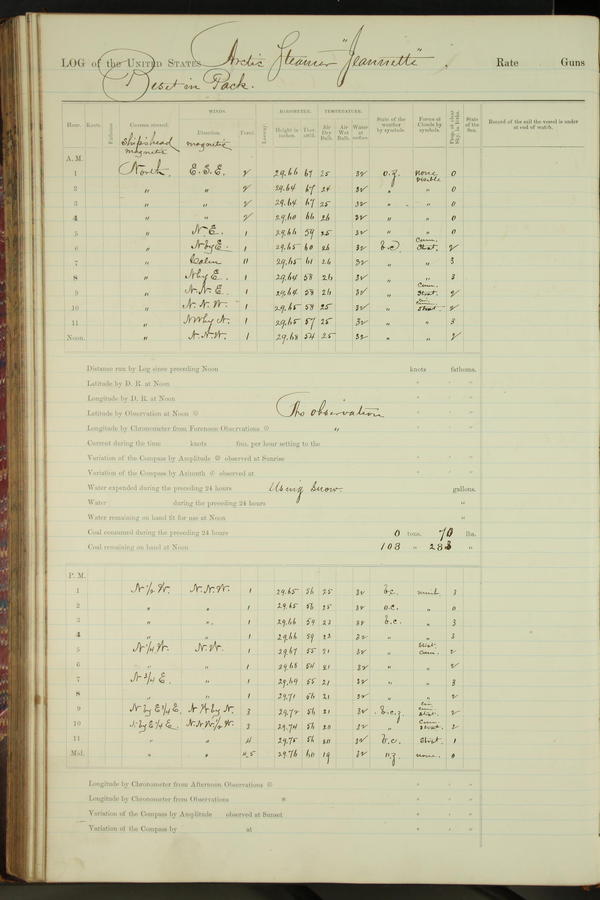 LOG of the UNITED STATES Arctic Steamer "Jeannette". Rate Guns
Beset in Pack.
WINDS. BAROMETER. TEMPERATURE.
Hour. Knots. Fathoms. Courses steered. Direction. Force. Leeway. Height in inches. Ther. att'd. Air Dry Bulb. Air Wet Bulb. Water at surface. State of the weather by symbols. Forms of Clouds by symbols. Prop. of clear Sky, in 10ths. State of the Sea. Record of the sail the vessel is under at end of watch.
ship's head magnetic magnetic
A. M.
1 North E.S.E. 2 29.66 67 25 32 o.z. none visible 0
2 " " 2 29.64 67 24 32 " " 0
3 " " 2 29.64 67 25 32 " " 0
4 " " 2 29.60 66 26 32 " " 0
5 " N.E. 1 29.66 59 25 32 " " 0
6 " NbyE. 1 29.65 60 26 32 b.c. Cum. Strat. 2
7 " Calm 0 29.65 61 26 32 " " 3
8 " Nby E. 1 29.64 58 26 32 " " 3
9 " N.N.E. 1 29.64 58 26 32 " Cum. Strat. 2
10 " N.N.W. 1 29.65 58 25 32 " Strat. 2
11 " NWby N. 1 29.65 57 25 32 " " 3
Noon. " N.N.W. 1 29.68 54 25 32 " " 2
Distance run by Log since preceding Noon knots fathoms.
Latitude by D. R. at Noon ° ' "
Longitude by D. R. at Noon ° ' "
Latitude by Observation at Noon No observation ° ' "
Longitude by Chronometer from Forenoon Observations " ° ' "
Current during the time knots fms. per hour setting to the
Variation of the Compass by Amplitude observed at Sunrise ° ' "
Variation of the Compass by Azimuth observed at ° ' "
Water expended during the preceding 24 hours Using snow. gallons.
Water during the preceding 24 hours "
Water remaining on hand fit for use at Noon "
Coal consumed during the preceding 24 hours 0 tons. 70 lbs.
Coal remaining on hand at Noon 108 " 283 "
P. M.
1 N 1/2 W. N.N.W. 1 29.65 56 25 32 b.c. 3
2 " " 1 29.65 56 25 32 o.c. " 0
3 " " 1 29.66 59 23 32 b.c. " 3
4 " " 1 29.66 59 22 32 " " 3
5 N 1/4 W. N.W. 1 29.67 55 21 32 " Strat. Cum. 2
6 " " 1 29.68 54 21 32 " " 2
7 N 3/4 E. " 1 29.69 55 21 32 " " 3
8 " " 1 29.71 56 21 32 " " 2
9 N by E 1/4 E. N W by N. 3 29.72 56 21 32 b.c.z. Cum. Strat. 2
10 N by E 1/4 E. N.N.W 1/2 W. 3 29.74 56 20 32 " Cum. Strat. 2
11 " " 4 29.75 56 20 32 b.c. Strat. 1
Mid. " " 4.5 29.76 60 19 32 o.z. none. 0
Longitude by Chronometer from Afternoon Observations ° ' "
Longitude by Chronometer from Observations ° ' "
Variation of the Compass by Amplitude observed at Sunset ° ' "
Variation of the Compass by at ° ' "